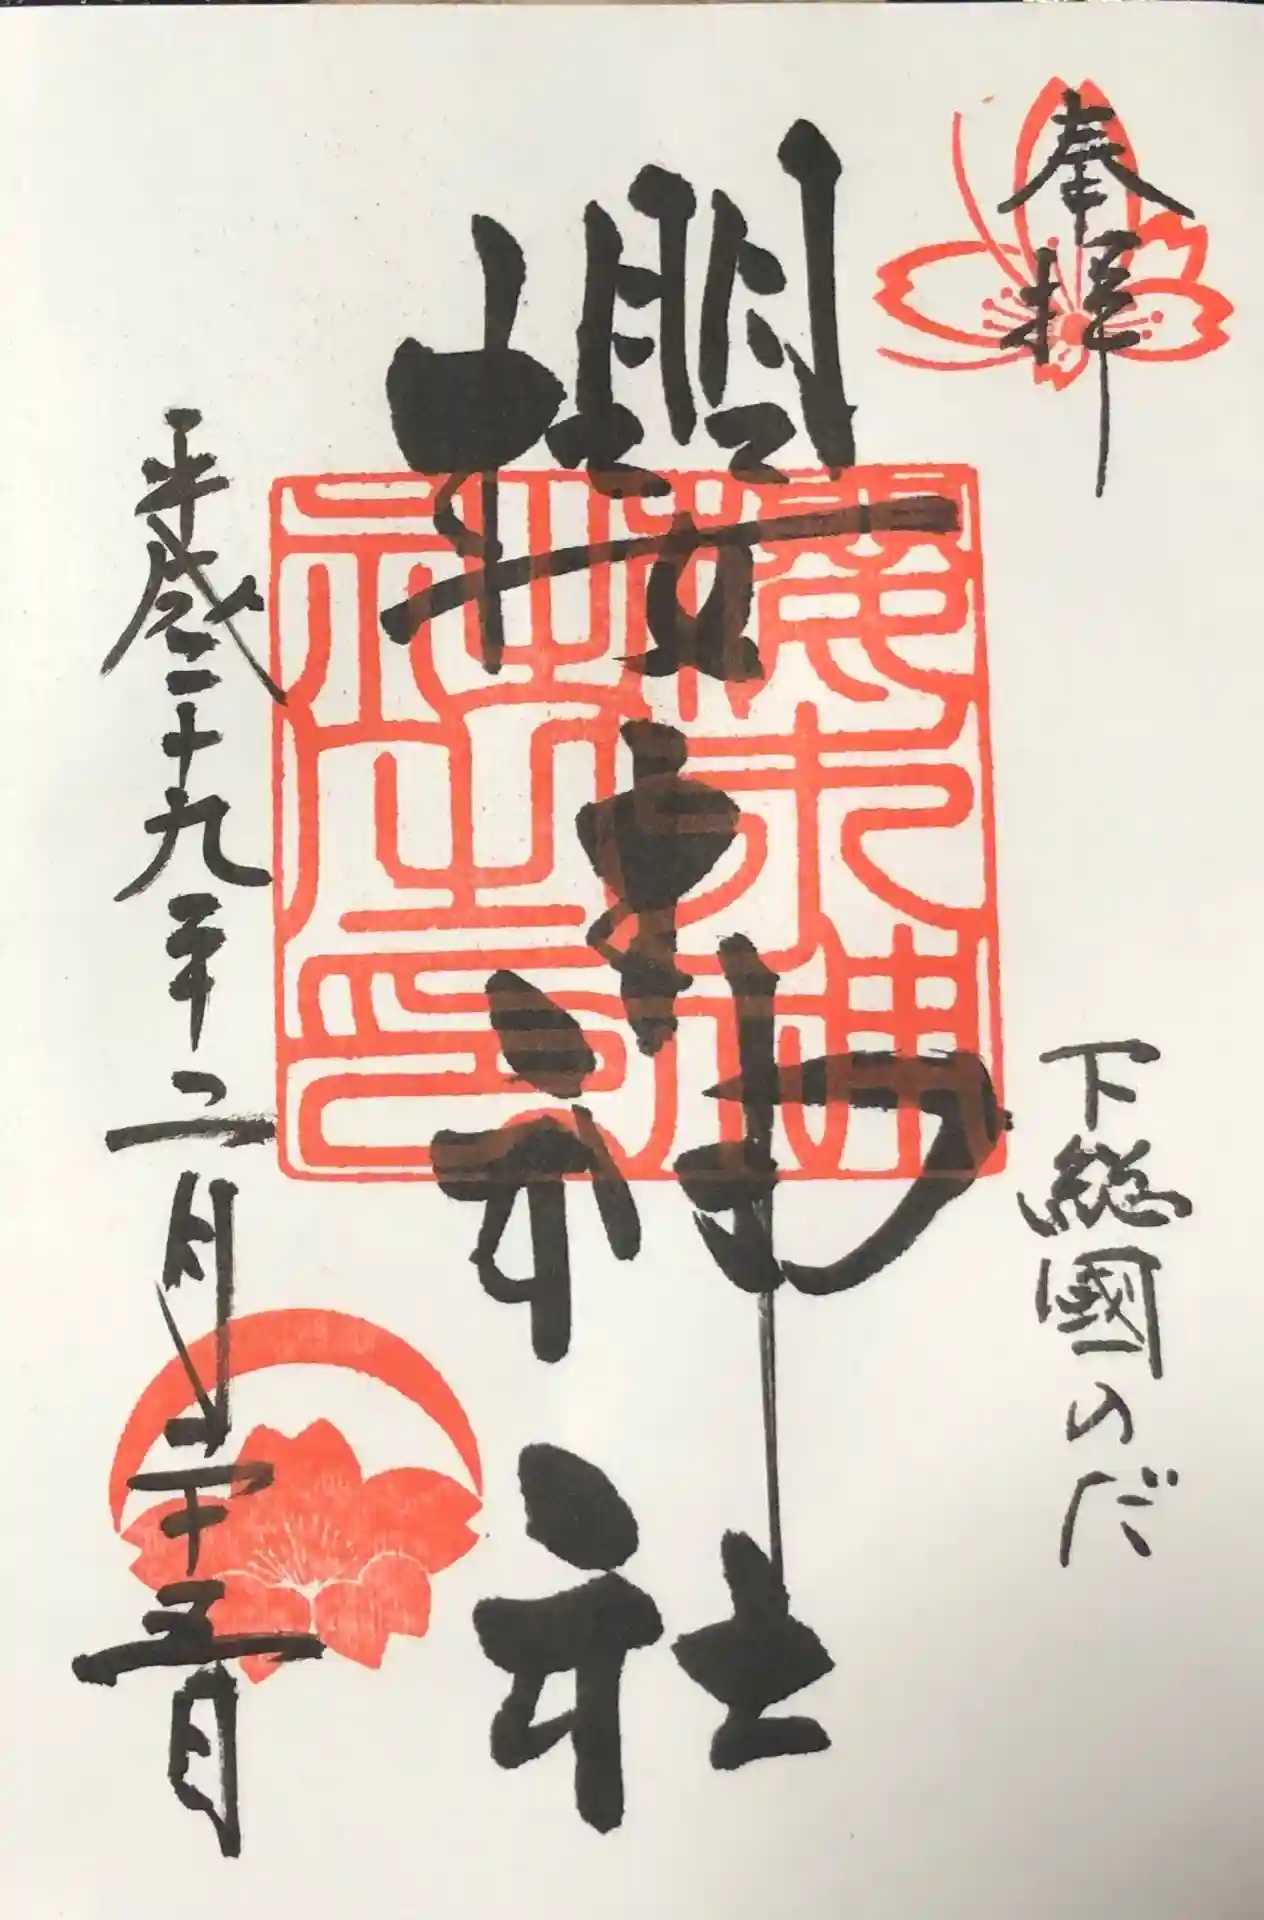 奉拝
下総國のだ
櫻木神社
櫻木神
社之印
平成二十九年二月二十五日